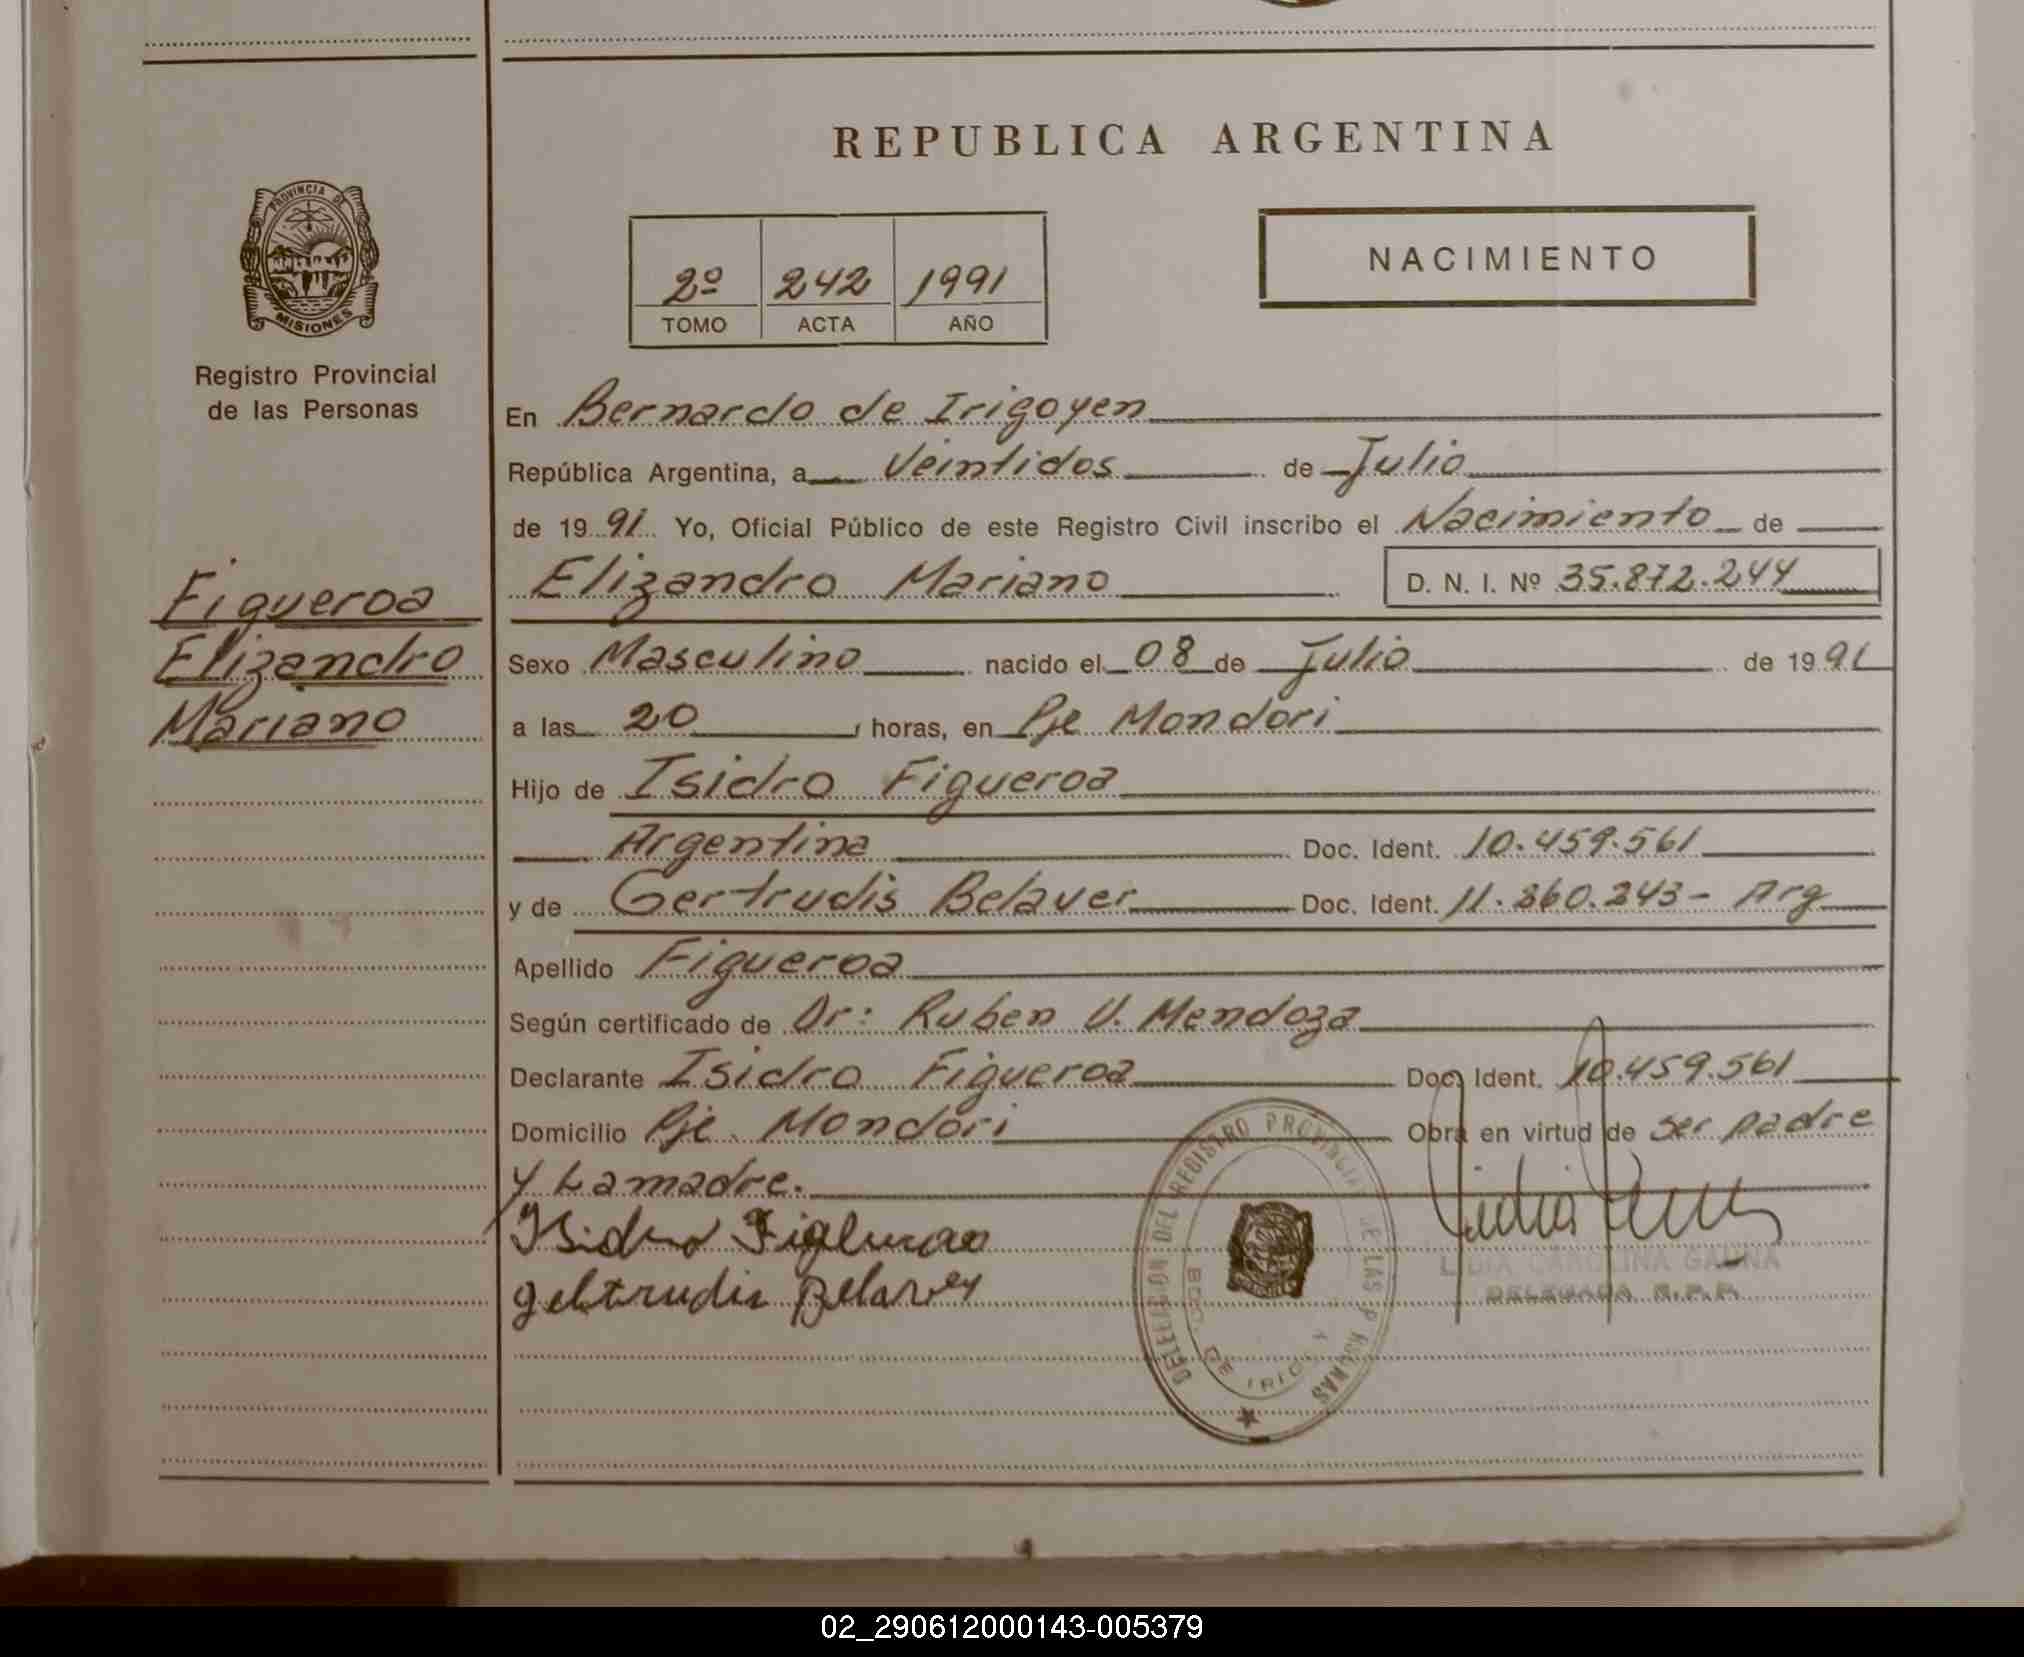 REPUBLICA ARGENTINA
PROVINCIA DE
MISIONES
Registro Provincial
de las Personas
2º 242 1991
TOMO ACTA AÑO
NACIMIENTO
Figueroa
Elizandro
Mariano
En Bernardo de Irigoyen
República Argentina, a Veintidos de Julio
de 1991 Yo, Oficial Público de este Registro Civil inscribo el Nacimiento de
Elizandro Mariano D. N. I. Nº 35.872.244
Sexo Masculino nacido el 08 de Julio de 1991
a las 20 horas, en Pje Mondori
Hijo de Isidro Figueroa
Argentina Doc. Ident. 10.459.561
y de Gertrudis Belaver Doc. Ident. 11.860.243- Arg
Apellido Figueroa
Según certificado de Dr: Ruben V. Mendoza
Declarante Isidro Figueroa Doc. Ident. 10.459.561
Domicilio Pje. Mondori Obra en virtud de ser padre
y La madre.
Isidro
DELEGACION DEL REGISTRO PROVINCIAL DE LAS PERSONAS
BDO. DE
LIDIA CAROLINA GAUNA
DELEGADA R.P.P.
02_290612000143-005379